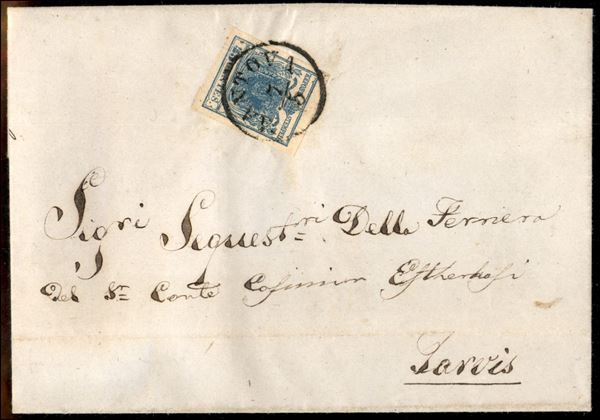 MANTOVA
Sigri Sequestri Della Ferriera
del Sr Conte Casimir Estherhasi
Tarvis